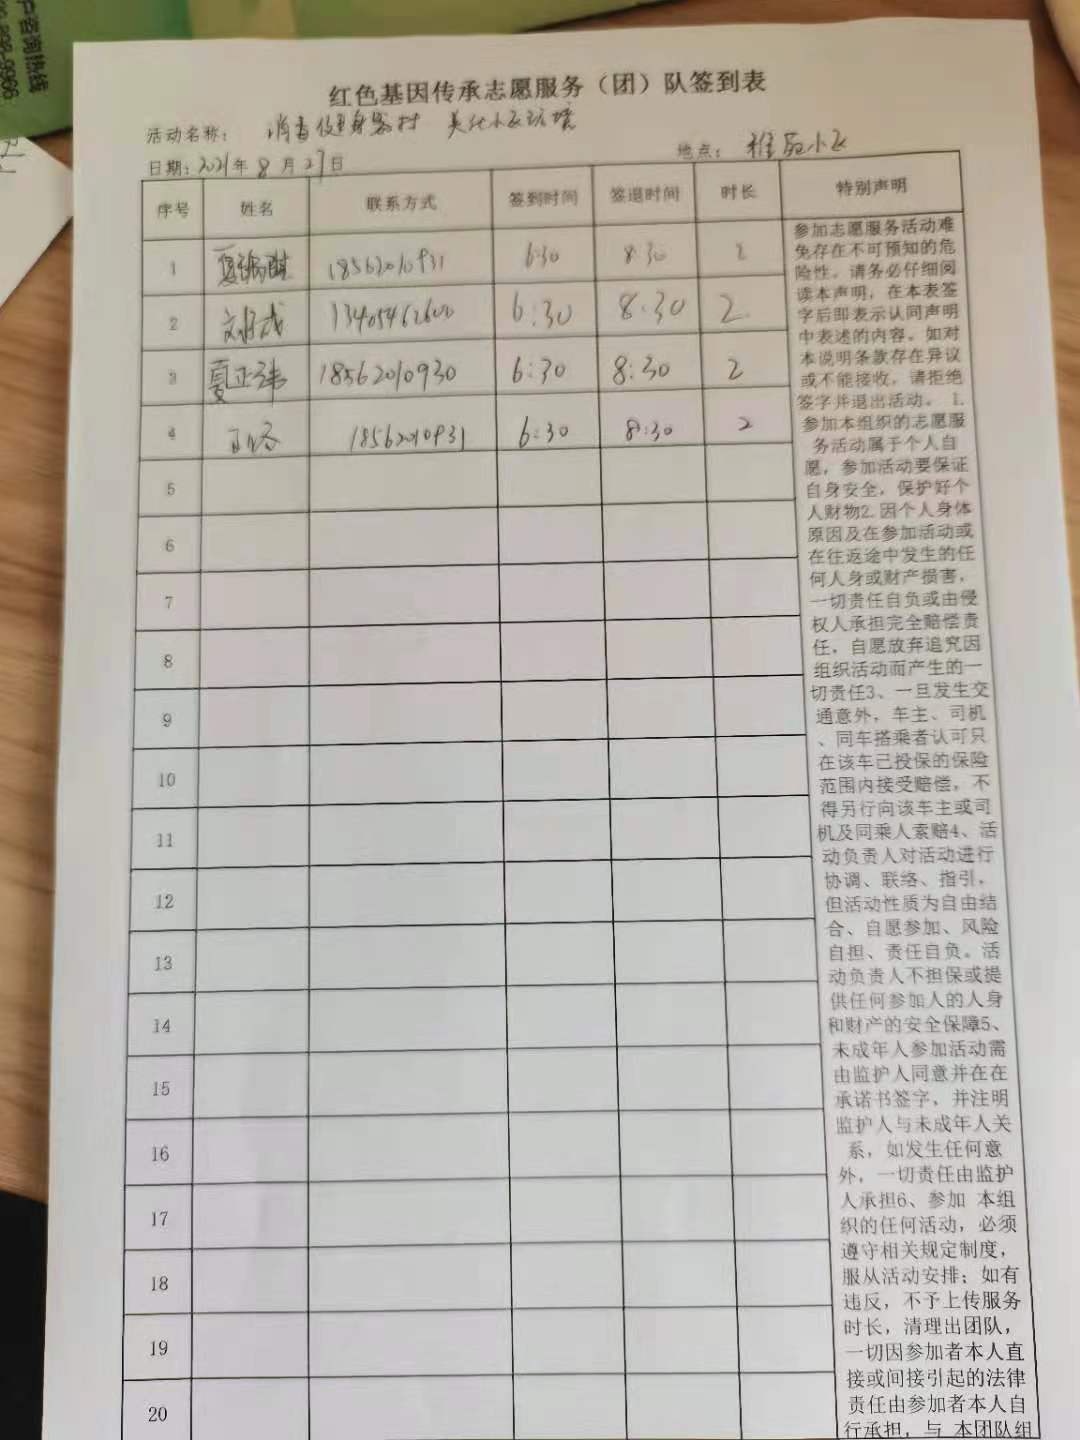 户咨询热线
红色基因传承志愿服务（团）队签到表
活动名称： 消毒健身器材 美化小区环境
日期：2021年8月27日
地点： 雅苑小区
序号 姓名 联系方式 签到时间 签退时间 时长 特别声明
1 18562010931 6:30 8:30 2
2 13405462600 6:30 8:30 2
3 夏正 18562010930 6:30 8:30 2
4 18562010931 6:30 8:30 2
5
6
7
8
9
10
11
12
13
14
15
16
17
18
19
20
参加志愿服务活动难
免存在不可预知的危
险性。请务必仔细阅
读本声明，在本表签
字后即表示认同声明
中表述的内容。如对
本说明条款存在异议
或不能接收，请拒绝
签字并退出活动。 1.
参加本组织的志愿服
务活动属于个人自
愿，参加活动要保证
自身安全，保护好个
人财物2.因个人身体
原因及在参加活动或
在往返途中发生的任
何人身或财产损害，
一切责任自负或由侵
权人承担完全赔偿责
任，自愿放弃追究因
组织活动而产生的一
切责任3、一旦发生交
通意外，车主、司机
、同车搭乘者认可只
在该车已投保的保险
范围内接受赔偿，不
得另行向该车主或司
机及同乘人索赔4、活
动负责人对活动进行
协调、联络、指引，
但活动性质为自由结
合、自愿参加、风险
自担、责任自负。活
动负责人不担保或提
供任何参加人的人身
和财产的安全保障5、
未成年人参加活动需
由监护人同意并在在
承诺书签字，并注明
监护人与未成年人关
系，如发生任何意
外，一切责任由监护
人承担6、参加 本组
织的任何活动，必须
遵守相关规定制度，
服从活动安排；如有
违反，不予上传服务
时长，清理出团队，
一切因参加者本人直
接或间接引起的法律
责任由参加者本人自
行承担，与 本团队组